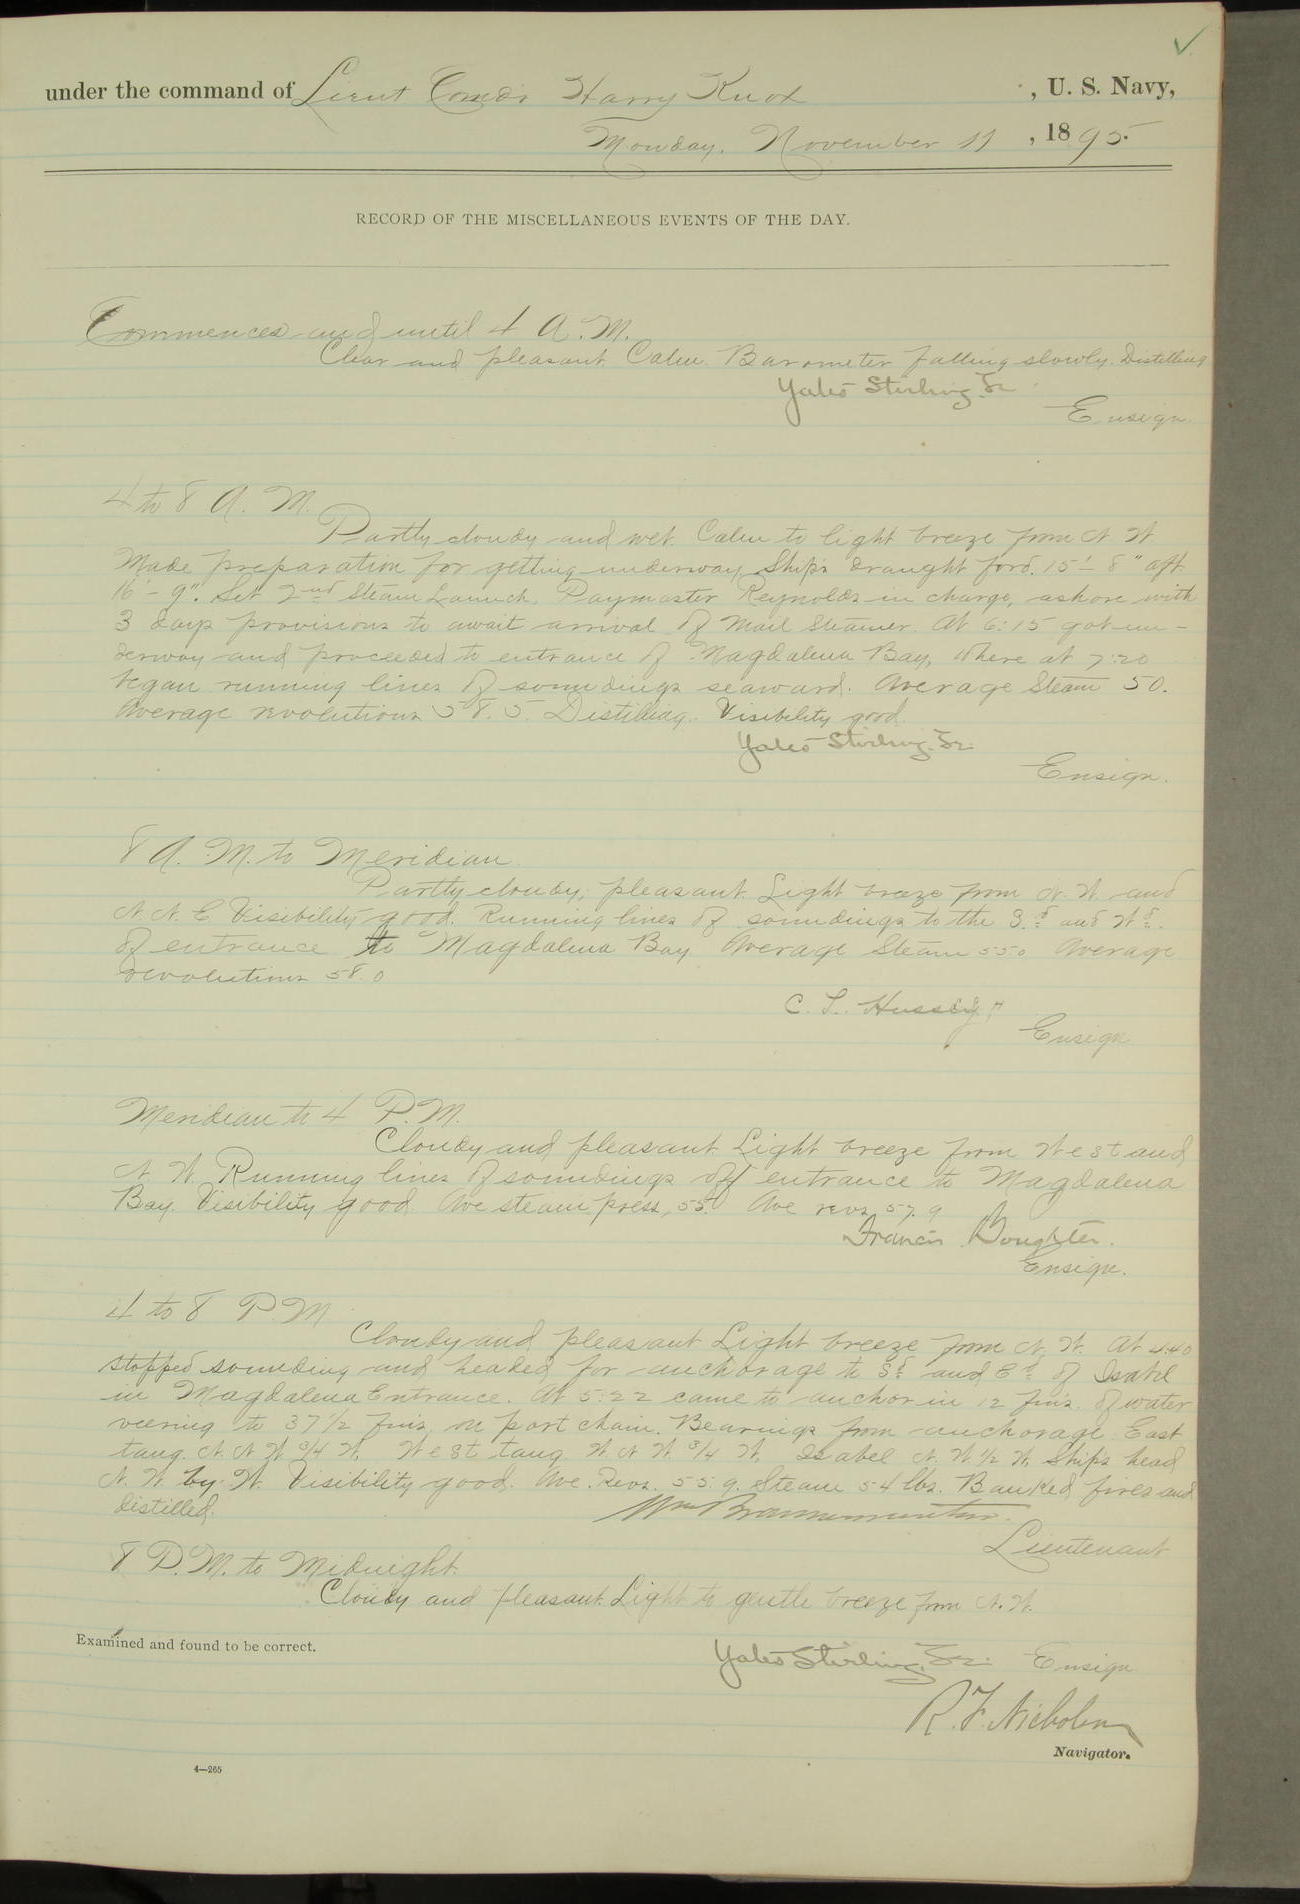 under the command of Lieut Comdr Harry Knox , U. S. Navy,
Monday, November 11 , 1895.
RECORD OF THE MISCELLANEOUS EVENTS OF THE DAY.
Commences and until 4 A. M.
Clear and pleasant. Calm. Barometer falling slowly. Distilling
Yates Stirling, Jr
Ensign.
4 to 8 A. M.
Partly cloudy and wet. Calm to light breeze from N W.
Made preparation for getting underway, Ships draught ford. 15'-8" aft
16'-9". Set 2nd Steam Launch, Paymaster Reynolds in charge, ashore with
3 days provisions to await arrival of Mail Steamer. At 6:15 got un-
derway and proceeded to entrance of Magdalena Bay, where at 7:20
began running lines of soundings seaward. Average Steam 50.
Average revolutions 58.5. Distilling. Visibility good.
Yates Stirling, Jr.
Ensign.
8 A. M. to Meridian.
Partly cloudy, pleasant. Light breeze from N. W. and
N. N. E. Visibility good. Running lines of soundings to the S.d and Wd.
of entrance to Magdalena Bay. Average Steam 55.0 Average
revolutions 58.0
C. L. Hussey
Ensign
Meridian to 4 P. M.
Cloudy and pleasant. Light breeze from West and
N. W. Running lines of soundings off entrance to Magdalena
Bay. Visibility good. Ave steam press, 55. Ave revs, 57.9
Francis Boughter.
Ensign.
4 to 8 P. M.
Cloudy and pleasant Light breeze from N. W. At 4:40
stopped sounding and headed for anchorage to Sd and Ed of Isabel
in Magdalena Entrance. At 5:22 came to anchor in 12 fms. of water
veering to 37 1/2 fms on port chain. Bearings from anchorage East
tang. N. N. W. 3/4 W. West tang W N W 3/4 W. Isabel N. W 1/2 W. Ships head
N. W. by W. Visibility good. Ave. Revs. 55.9. Steam 54 lbs. Banked fires and
distilled.
Wm Braunersreuther.
Lieutenant
8 P. M. to Midnight.
Cloudy and pleasant. Light to gentle breeze from N. W.
Examined and found to be correct.
Yates Stirling, Jr. Ensign
R. F. Nicholson
Navigator.
4—265